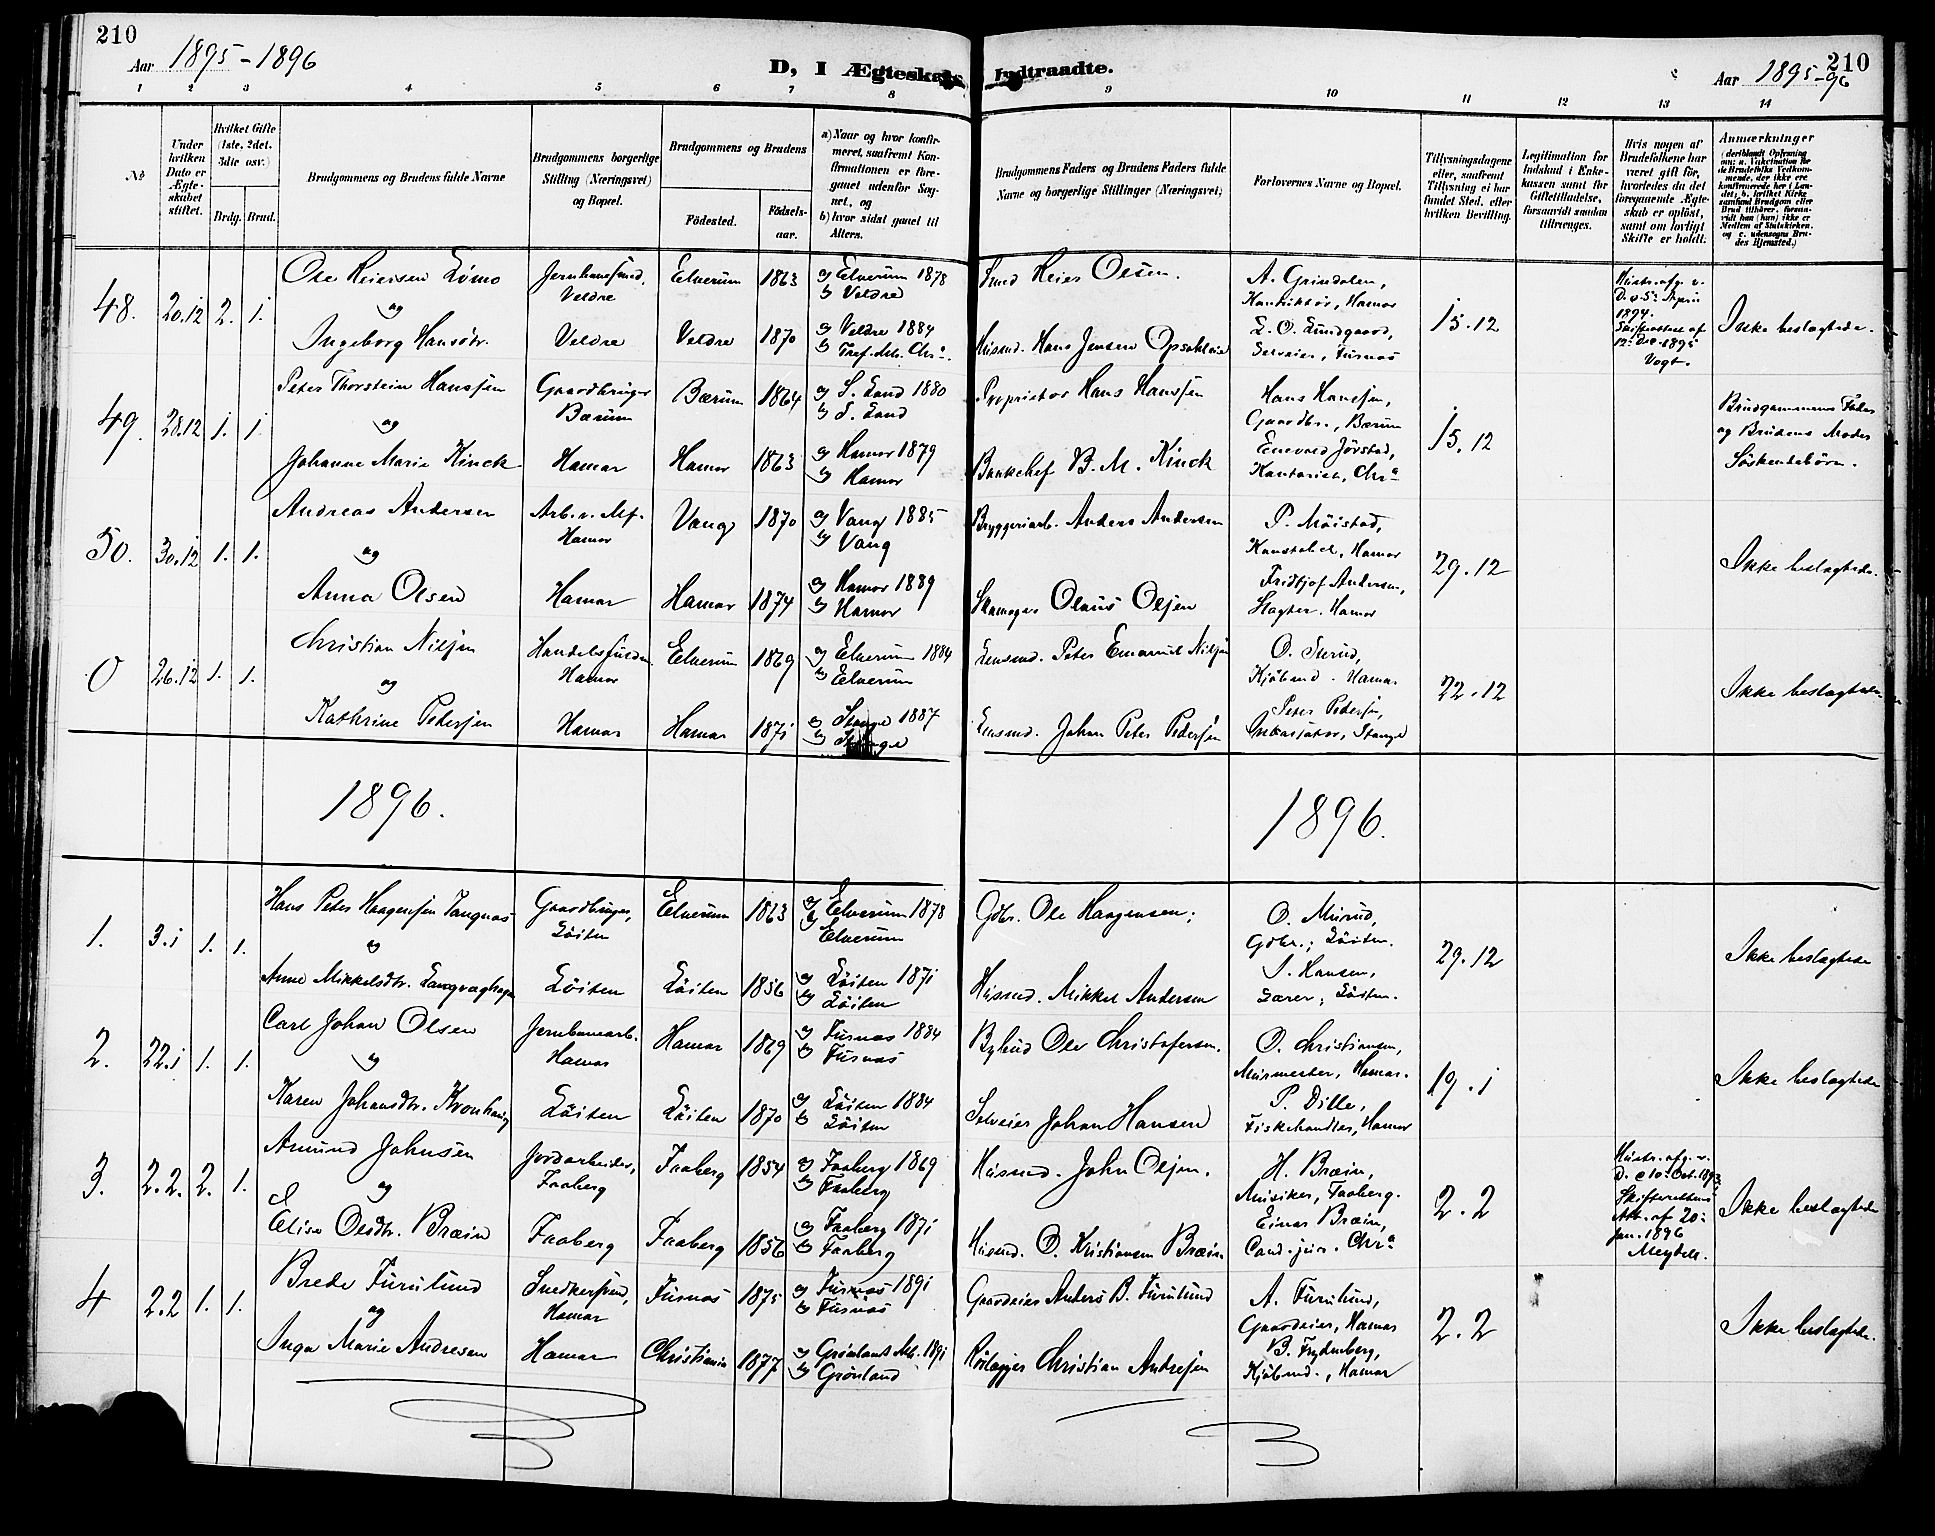 210
Aar 1895-1896
D, I Ægteskab Indtraadte.
Aar 1895-96
210
1 2 3 4 5 6 7 8 9 10 11 12 13 14
№
Under hvilken Dato er Ægteskabet stiftet.
Hvilket Gifte (1ste, 2det, 3die osv.)
Brdg. Brud.
Brudgommens og Brudens fulde Navne
Brudgommens borgerlige Stilling (Næringsvei) og Bopæl.
Brudgommens og Brudens
Fødested.
Fødselsaar.
a) Naar og hvor konfirmeret, saafremt Konfirmationen er foregaaet udenfor Sognet, og
b) hvor sidst gaaet til Alters.
Brudgommens Faders og Brudens Faders fulde Navne og borgerlige Stillinger (Næringsvei)
Forlovernes Navne og Bopæl.
Tillysningsdagene eller, saafremt Tillysning ei har fundet Sted, efter hvilken Bevilling.
Legitimation for Indskud i Enkekassen samt for Giftetilladelse, forsaavidt saadan tiltrænges.
Hvis nogen af Brudefolkene har været gift før, hvorledes da det foregaaende Ægteskab er opløst, samt om lovligt Skifte er holdt.
Anmærkninger
(deriblandt Oplysning om: a. Vakcination for de Brudefolks Vedkommende, der ikke ere konfirmerede her i Landet; b. hvilket Kirkesamfund Brudgom eller Brud tilhører, forsaavidt han (hun) ikke er Medlem af Statskirken, og c. udensogns Brudes Hjemsted.)
48. 20.12 2. 1.
Ole Heiersen Lömo
og
Ingeborg Hansdtr.
Veldre
Veldre
Elverum 1863
Veldre 1870
a) Elverum 1878
b) Veldre
a) Veldre 1884
Heier Olsen.
Husmd. Hans Jensen
A. Grindalen,
Hamar
L. O. Lundgaard,
Selveier, Furnæs
15.12
1894.
Vogt.
Ikke beslægtede.
49. 28.12 1. 1
Peter Thorstein Hanssen
og
Johanne Marie Kinck
Gaardbruger
Bærum
Hamar
Bærum 1864
Hamar 1863
a) S. Land 1880
b) S. Land
a) Hamar 1879
b) Hamar
Proprietær Hans Hanssen
Bankchef B. M. Kinck
Hans Hanssen,
Gaardbr., Bærum
Enevald Jörstad,
Kontorist, Chra
15.12
Brudgommens Fader
og Brudens Moder
Söskendebörn.
50. 30.12 1. 1.
Andreas Andersen
og
Anna Olsen
Hamar
Hamar
Vang 1870
Hamar 1874
a) Vang 1885
b) Vang
a) Hamar 1889
b) Hamar
Bryggeriarb. Anders Andersen
Skomager Olaus Olsen
P. Möistad,
Konstabel, Hamar
Fridtjof Andersen,
Slagter. Hamar
29.12
Ikke beslægtede.
0 26.12 1. 1.
Christian Nilsen
og
Kathrine Pedersen
Hamar
Hamar
Elverum 1869
Hamar 1871
a) Elverum 1884
b) Elverum
a) Stange 1887
b) Stange
Peter Emanuel Nilsen
Johan Peter Pedersen
Kjöbmd. Hamar
Peter Pedersen,
Inkassator, Stange
22.12
Ikke beslægtede.
1896.
1896.
1. 3.1 1. 1.
Hans Peter Haagensen Tangnæs
og
Anne Mikkelsdtr.
Gaardbruger,
Löiten
Löiten
Elverum 1863
Löiten 1856
a) Elverum 1878
b) Elverum
a) Löiten 1871
b) Löiten
Gdbr. Ole Haagensen;
Husmd. Mikkel Andersen
O. Murud,
Gdbr., Löiten.
S. Hansen,
Lærer, Löiten.
29.12
Ikke beslægtede
2. 22.1 1. 1.
Carl Johan Olsen
og
Karen Johansdtr. Kronhaug
Jernbanearb.
Hamar
Löiten
Hamar 1869
Löiten 1870
a) Furnæs 1884
b) Furnæs
a) Löiten 1884
b) Löiten
Ole Christofersen.
Selveier Johan Hansen
O. Christiansen,
Murmester, Hamar.
P. Dille,
Fiskehandler, Hamar
19.1
Ikke beslægtede
3. 2.2. 2. 1.
Amund Johnsen
og
Elise Olsdtr. Bræin
Jordarbeider,
Faaberg
Faaberg
Faaberg 1854
Faaberg 1856
a) Faaberg 1869
b) Faaberg
a) Faaberg 1871
b) Faaberg
Husmd. John Olsen.
Husmd. O. Kristiansen Bræin
H. Bræin,
Musiker, Faaberg.
Einar Bræin,
Cand. jur. Chra
2.2
Hustr. afg. v.
D. 10. Oct. 1893
Skifterettens
Att. af 20.
Jan. 1896
Ikke beslægtede
4 2.2 1. 1.
Brede Furulund
og
Inga Marie Andresen
Snedkersvend,
Hamar
Hamar
Furnæs 1875
Christiania 1877
a) Furnæs 1891
b) Furnæs
a) Grönland Mh. 1891
b) Grönland
Gaardeier Anders B. Furulund
Christian Andresen
A. Furulund,
Gaardeier, Hamar
B. Frydenberg,
Kjöbmd., Hamar
2.2
Ikke beslægtede.